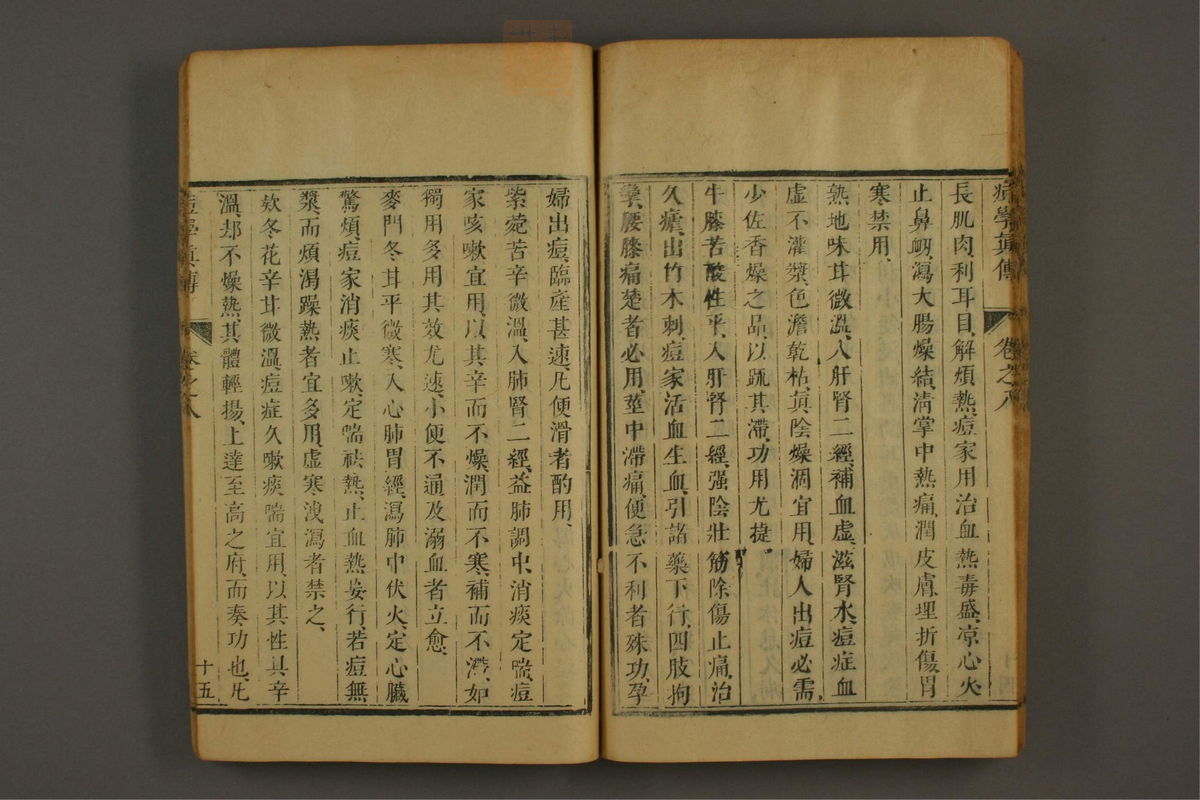 痘學眞傳 卷之八
長肌肉、利耳目、解煩熱、痘家用治血熱毒盛、凉心火
止鼻衂、瀉大腸燥結、淸掌中熱痛、潤皮膚埋折傷、胃
寒禁用、
熟地味甘微溫、入肝腎二經、補血虛、滋腎水、痘症血
虛不灌漿、色澹乾枯、眞陰燥涸宜用、婦人出痘必需、
少佐香燥之品、以疏其滯、功用尤捷
牛膝苦酸性平、入肝腎二經、强陰壯筋、除傷止痛、治
久瘧、出竹木刺、痘家活血生血、引諸藥下行、四肢拘
攣、腰膝痛楚者必用、莖中滯痛、便急不利者殊功、孕
婦出痘、臨産甚速、凡便滑者酌用、
紫菀苦辛微溫、入肺腎二經、益肺調中、消痰定喘、痘
家咳嗽宜用、以其辛而不燥、潤而不寒、補而不滯、如
獨用多用其效尤速、小便不通及溺血者立愈、
麥門冬甘平微寒、入心肺胃經、瀉肺中伏火、定心臟
驚煩、痘家消痰止嗽、定喘祛熱、止血熱妄行、若痘無
漿、而煩渴躁熱者宜多用、虛寒洩瀉者禁之、
欵冬花辛甘微溫、痘症久嗽痰喘宜用、以其性具辛
溫、却不燥熱、其體輕揚、上達至高之府、而奏功也、凡
痘學眞傳 卷之八
十五